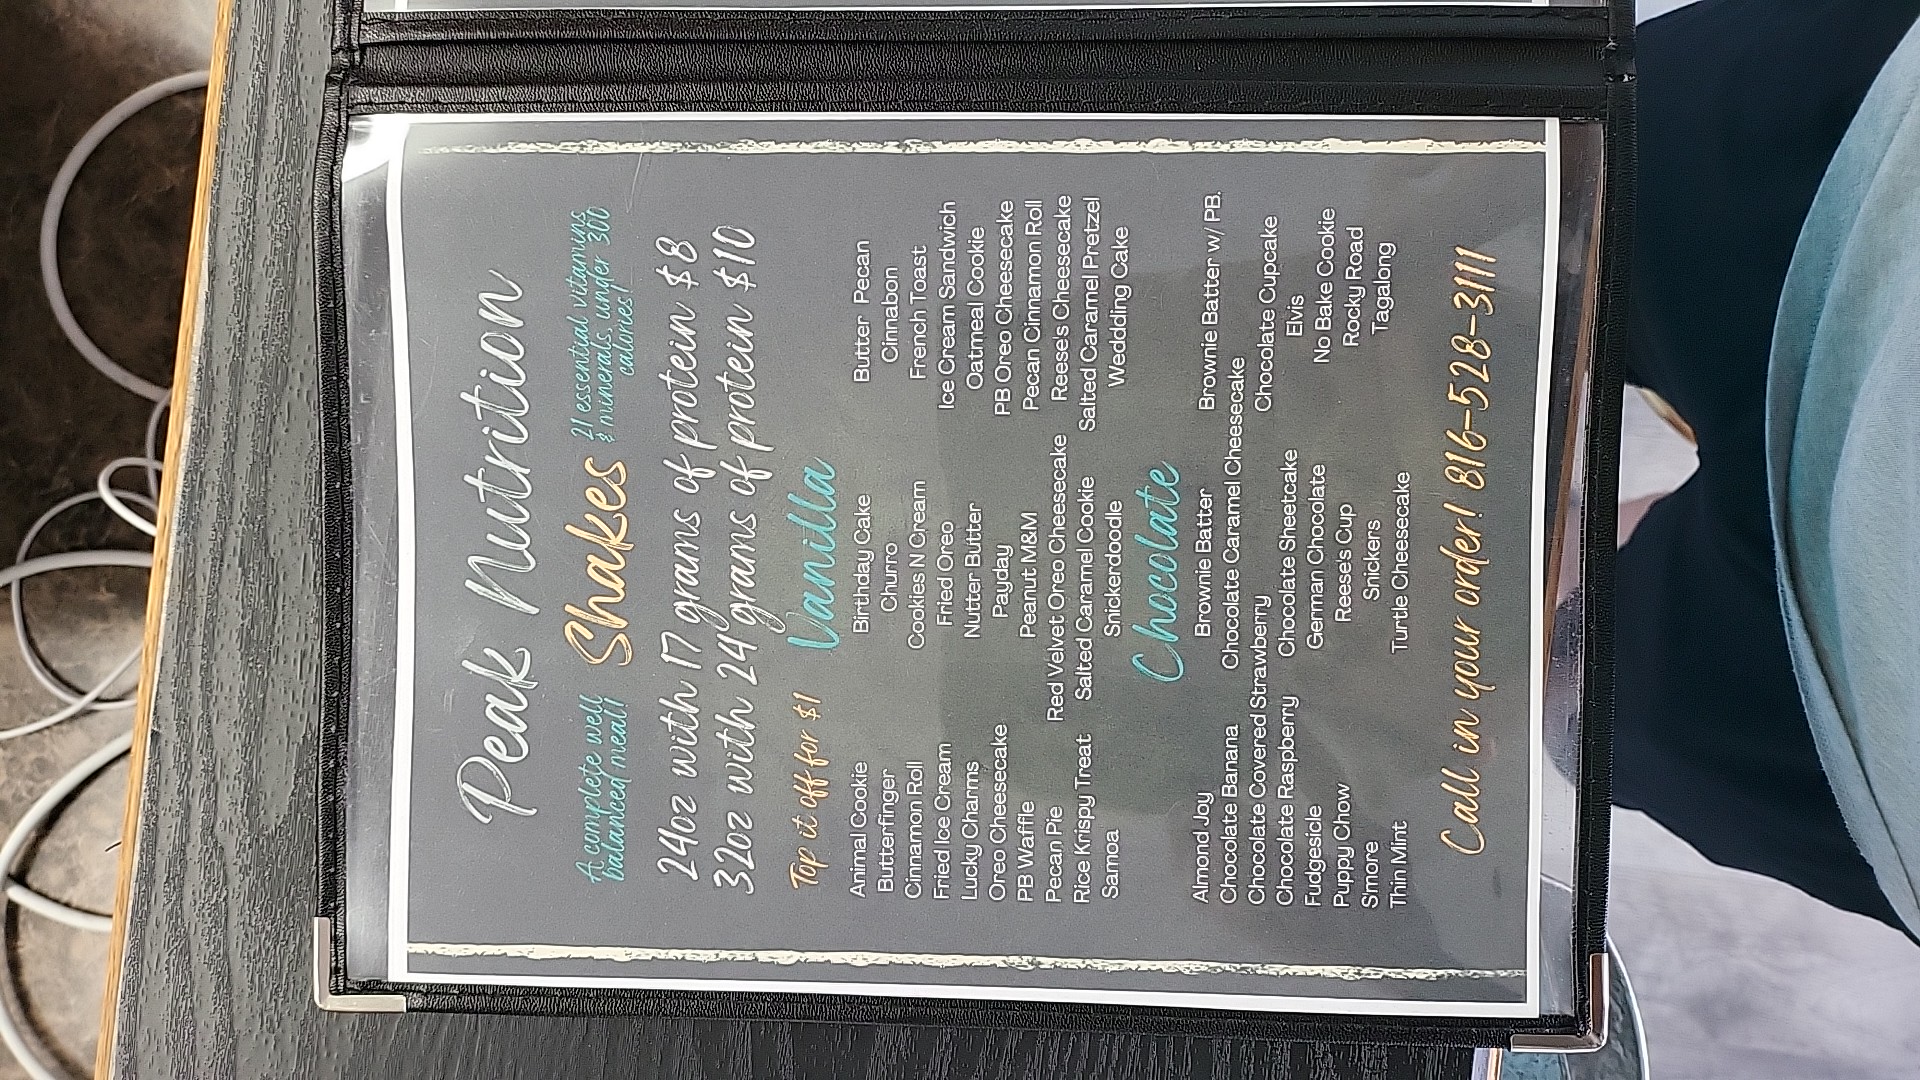 Peak Nutrition
A complete well
balanced meal!
Shakes
21 essential vitamins
& minerals, under 300
calories!
24oz with 17 grams of protein $8
32oz with 24 grams of protein $10
Top it off for $1
Vanilla
Animal Cookie
Butterfinger
Cinnamon Roll
Fried Ice Cream
Lucky Charms
Oreo Cheesecake
PB Waffle
Pecan Pie
Rice Krispy Treat
Samoa
Birthday Cake
Churro
Cookies N Cream
Fried Oreo
Nutter Butter
Payday
Peanut M&M
Red Velvet Oreo Cheesecake
Salted Caramel Cookie
Snickerdoodle
Butter Pecan
Cinnabon
French Toast
Ice Cream Sandwich
Oatmeal Cookie
PB Oreo Cheesecake
Pecan Cinnamon Roll
Reese's Cheesecake
Salted Caramel Pretzel
Wedding Cake
Chocolate
Almond Joy
Chocolate Banana
Chocolate Covered Strawberry
Chocolate Raspberry
Fudgesicle
Puppy Chow
Smore
Thin Mint
Brownie Batter
Chocolate Caramel Cheesecake
Chocolate Sheetcake
German Chocolate
Reese's Cup
Snickers
Turtle Cheesecake
Brownie Batter w/ PB.
Chocolate Cupcake
Elvis
No Bake Cookie
Rocky Road
Tagalong
Call in your order! 816-528-3111